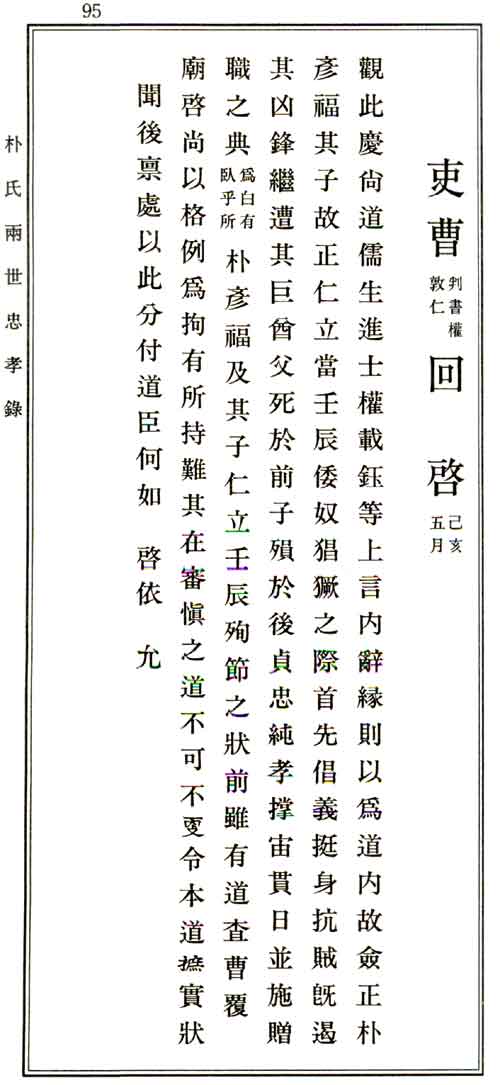 95
吏曹 判書權敦仁 回啓 己亥五月
觀此慶尙道儒生進士權載鈺等上言内辭緣則以爲道内故僉正朴
彥福其子故正仁立當壬辰倭奴猖獗之際首先倡義挺身抗賊旣遏
其凶鋒繼遭其巨酋父死於前子殞於後貞忠純孝撑宙貫日並施贈
職之典 爲白有臥乎所 朴彥福及其子仁立壬辰殉節之狀前雖有道査曹覆
廟啓尙以格例爲拘有所持難其在審愼之道不可不更令本道摭實狀
聞後禀處以此分付道臣何如 啓依 允
朴氏兩世忠孝錄